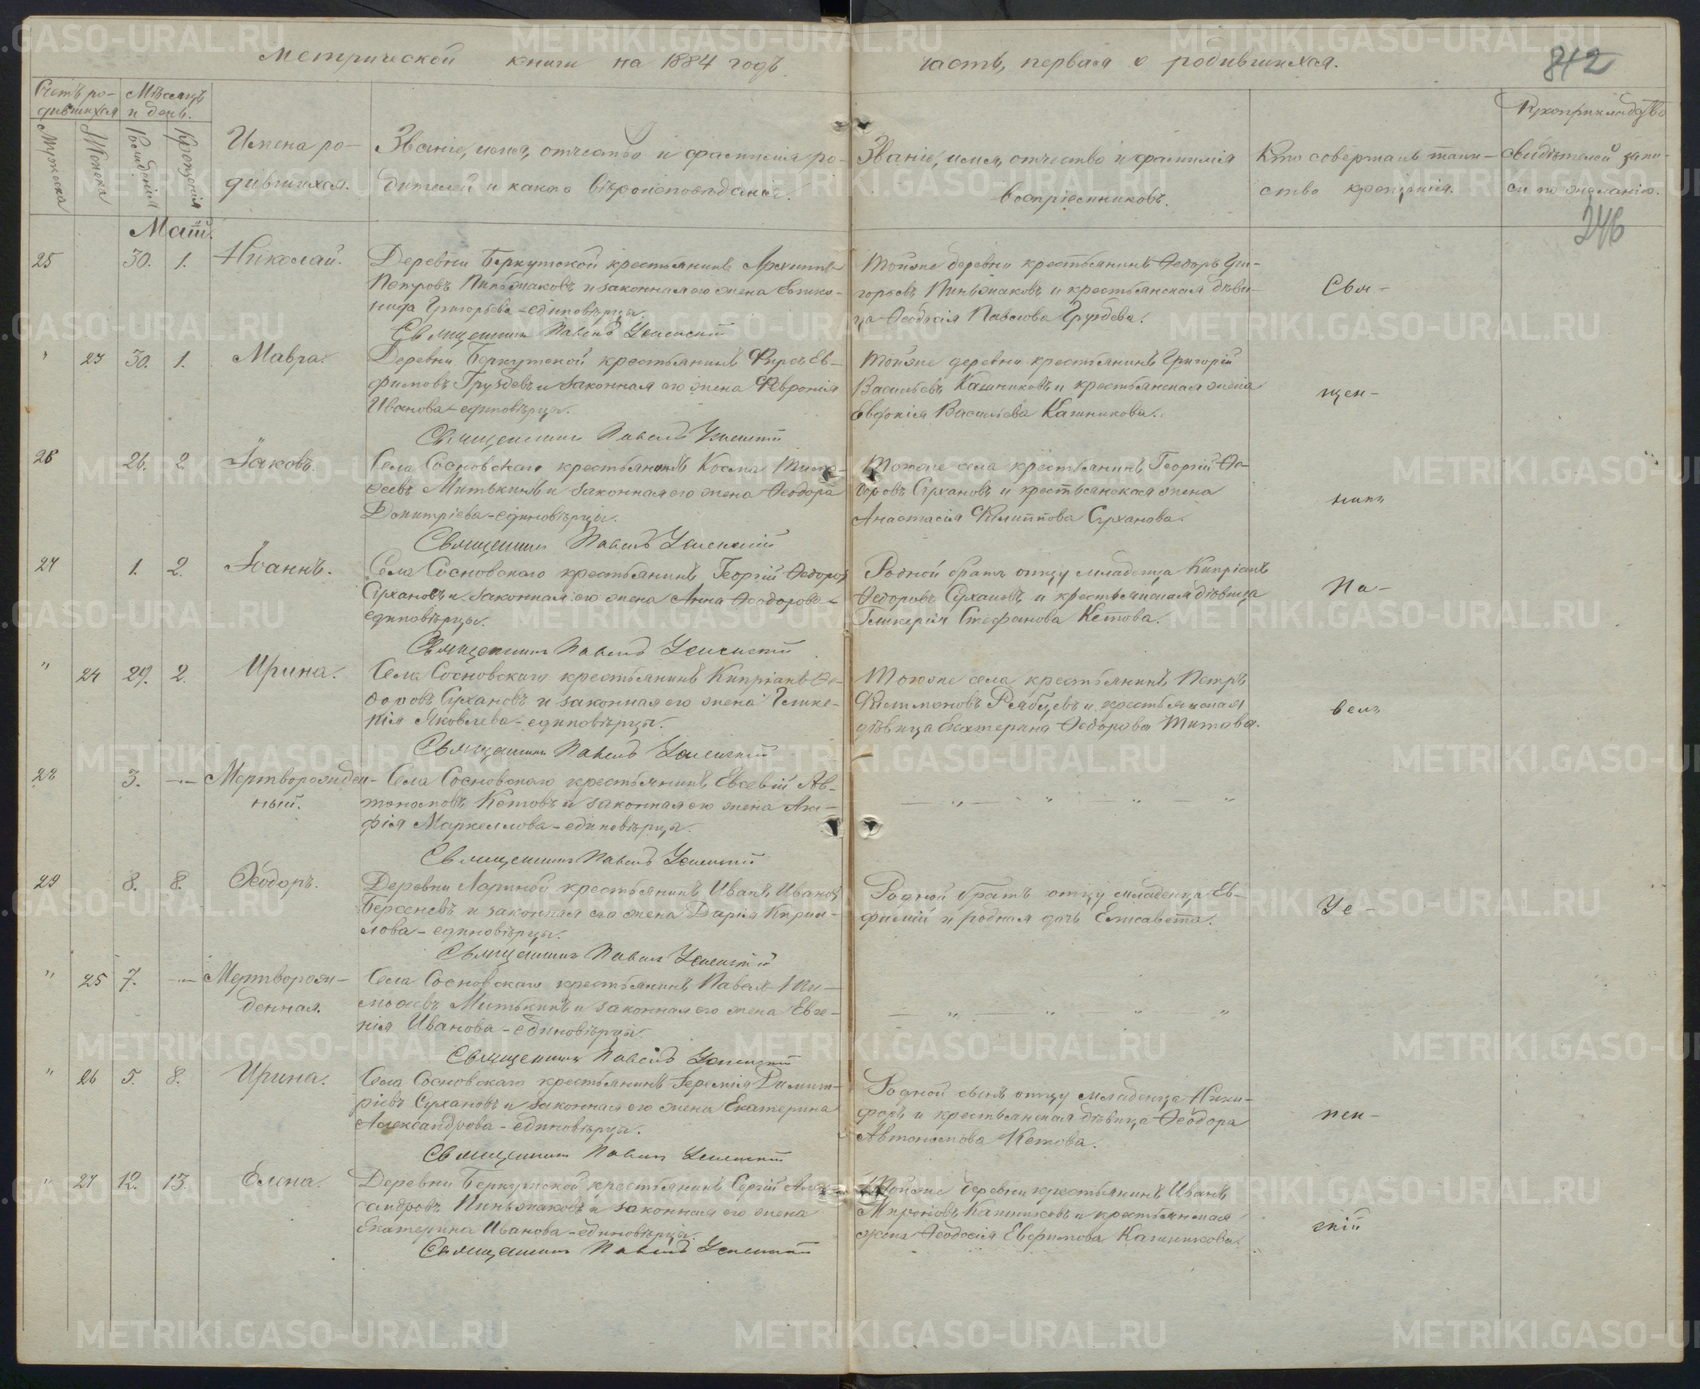 метрической книги на 1884 годъ
часть, первая о родившихся.
812
Счетъ родившихся
Мѣсяцъ и день.
Мужеска
Женска
Рожденія
Крещенія
Имена родившихся.
Званіе, имя, отчество и фамилія родителей и какого вѣроисповѣданія.
Званіе, имя, отчество и фамилія воспріемниковъ.
Кто совершалъ таинство крещенія.
Рукоприкладство свидѣтелей записи по желанію.
246
Май.
25 30. 1. Николай.
Деревни Беркутской крестьянинъ
Петровъ Пиньжаковъ и законная его жена
Григорьева - единовѣрцы.
Тойже деревни крестьянинъ Ѳедоръ Гри-
горьевъ Пиньжаковъ и крестьянская дѣви-
ца Ѳеодосія Павлова Груздева.
Свя-
Священникъ Павелъ Успенскій
" 23 30. 1. Мавра.
Деревни Беркутской крестьянинъ Фирсъ Ев-
фимовъ Груздевъ и законная его жена Февронія
Иванова - единовѣрцы.
Тойже деревни крестьянинъ Григорій
Васильевъ Кашниковъ и крестьянская жена
Евдокія Васильева Кашникова.
щен-
Священникъ Павелъ Успенскій
26 26. 2. Іаковъ.
Села Сосновскаго крестьянинъ Косма Тимо-
ѳеевъ Митькинъ и законная его жена Ѳеодора
Димитріева - единовѣрцы.
Тогоже села крестьянинъ Георгій Ѳе-
доровъ Сухановъ и крестьянская жена
Анастасія Филиппова Суханова.
никъ
Священникъ Павелъ Успенскій
27 1. 2. Іоаннъ.
Села Сосновскаго крестьянинъ Георгій Ѳедоровъ
Сухановъ и законная его жена Анна Ѳеодорова -
единовѣрцы.
Родной братъ отцу младенца Кипріанъ
Ѳедоровъ Сухановъ и крестьянская дѣвица
Гликерія Стефанова Кетова.
Па-
Священникъ Павелъ Успенскій
" 24 29. 2. Ирина.
Села Сосновскаго крестьянинъ Кипріанъ Ѳе-
доровъ Сухановъ и законная его жена Глике-
рія Яковлева - единовѣрцы.
Тогоже села крестьянинъ Петръ
Филимоновъ Рябцевъ и крестьянская
дѣвица Екатерина Ѳедорова Титова.
велъ
Священникъ Павелъ Успенскій
28 3. — Мертворожден-
ный.
Села Сосновскаго крестьянинъ Евсевій Ав-
тономовъ Кетовъ и законная его жена Ага-
фія Маркеллова - единовѣрцы.
— " — " — " — "
Священникъ Павелъ Успенскій
29 8. 8. Ѳеодоръ.
Деревни Лариной крестьянинъ Иванъ Ивановъ
Берсеневъ и законная его жена Дарія Кирил-
лова - единовѣрцы.
Родной братъ отцу младенца Ев-
фимій и родная дочь Елисавета.
Ус-
Священникъ Павелъ Успенскій
" 25 7. — Мертворож-
денная.
Села Сосновскаго крестьянинъ Павелъ Ти-
моѳеевъ Митькинъ и законная его жена Евге-
нія Иванова - единовѣрцы.
— " — " — " — "
Священникъ Павелъ Успенскій
" 26 5. 8. Ирина.
Села Сосновскаго крестьянинъ Іеремія Димит-
ріевъ Сухановъ и законная его жена Екатерина
Александрова - единовѣрцы.
Родной сынъ отцу младенца Ники-
форъ и крестьянская дѣвица Ѳеодора
Автономова Кетова.
пен-
Священникъ Павелъ Успенскій
" 27 12. 13. Елена.
Деревни Беркутской крестьянинъ Сергій Алек-
сандровъ Пиньжаковъ и законная его жена
Екатерина Иванова - единовѣрцы.
Тойже деревни крестьянинъ Иванъ
Мироновъ Кашниковъ и крестьянская
жена Ѳеодосія Евфимова Кашникова.
скій
Священникъ Павелъ Успенскій
METRIKI.GASO-URAL.RU